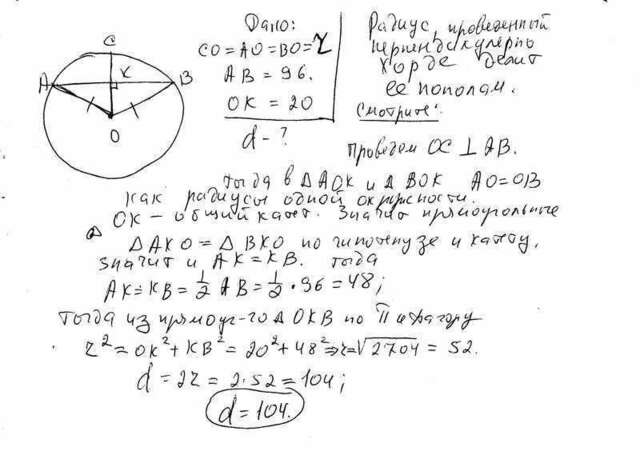 Дано:
CO = AO = BO = r
AB = 96.
OK = 20
d - ?
Радиус, проведенный
перпендикулярно
Хорде делит
ее пополам.
Смотрите:
проведем OC ⊥ AB.
C
A
K
B
O
Тогда в △ AOK и △ BOK AO = OB
как радиусы одной окружности.
OK - общий катет. Значит прямоугольные
△ AKO = △ BKO по гипотенузе и катету,
значит и AK = KB. Тогда
AK = KB = 1/2 AB = 1/2 · 96 = 48;
Тогда из прямоуг-го △ OKB по Пифагору
r² = OK² + KB² = 20² + 48² ⇒ r = √2704 = 52.
d = 2r = 2·52 = 104;
d = 104.